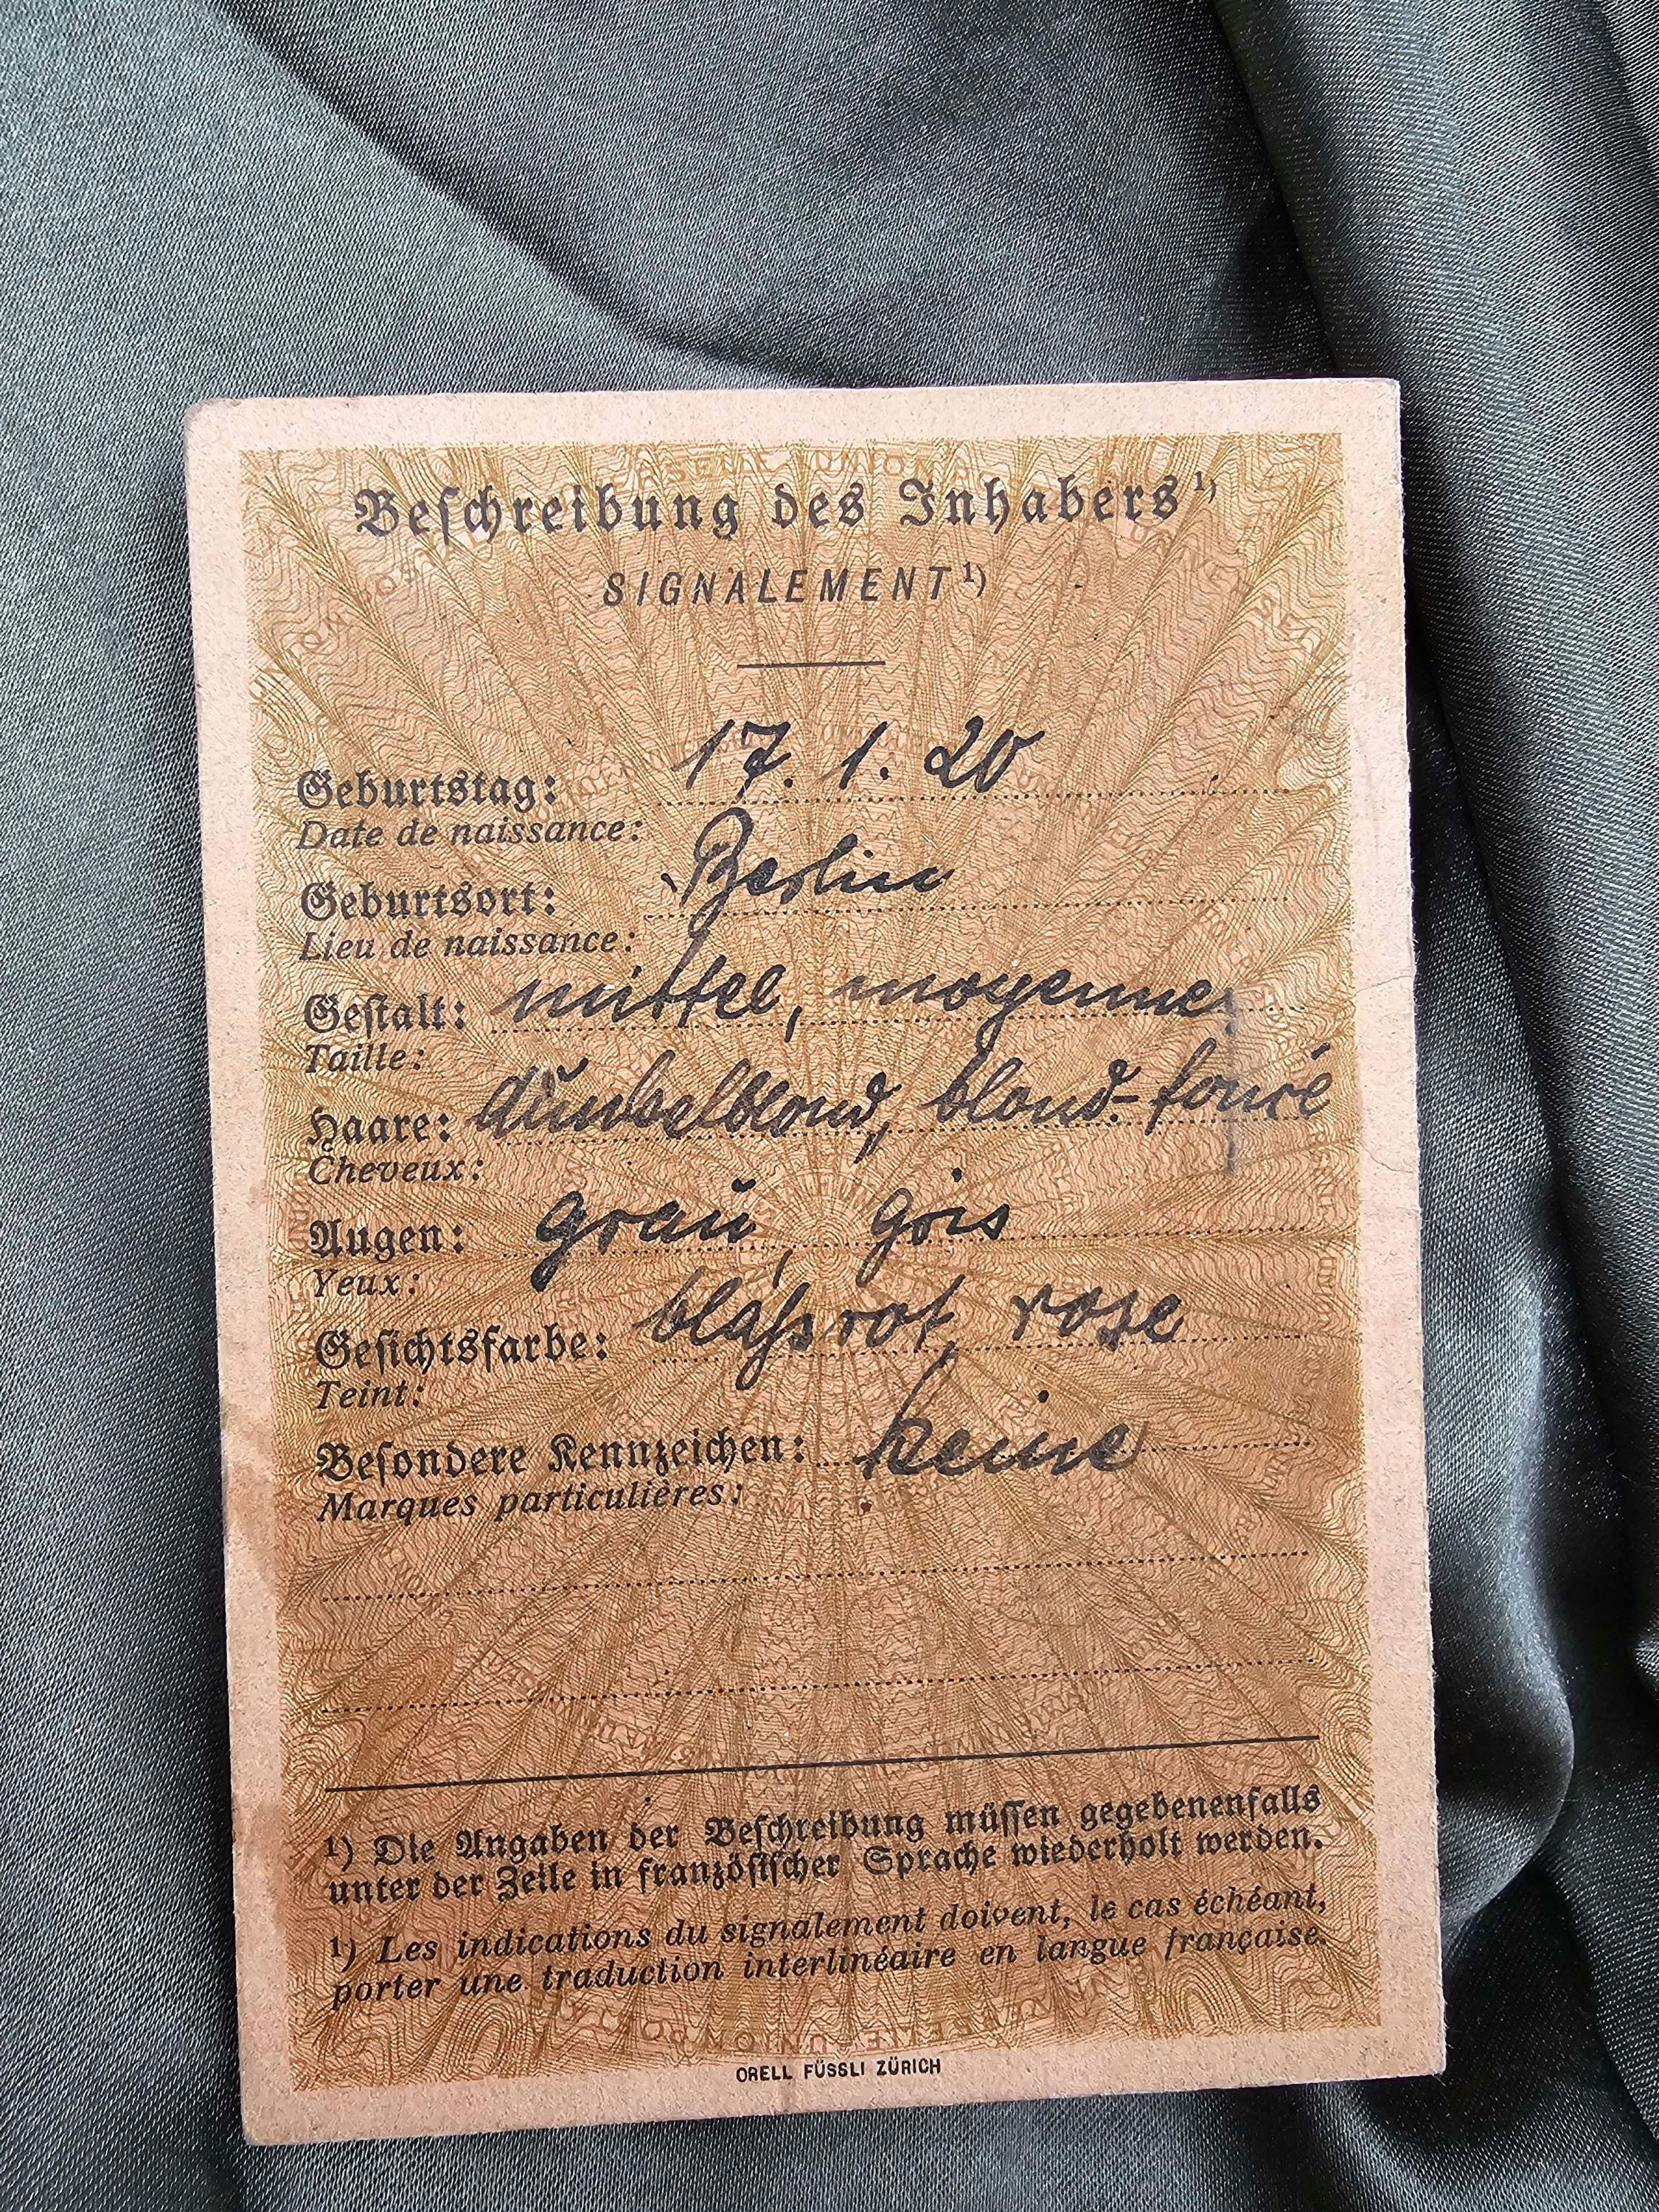 Beschreibung des Inhabers ¹)
SIGNALEMENT ¹)
Geburtstag: 17. 1. 20
Date de naissance:
Geburtsort: Berlin
Lieu de naissance:
Gestalt: mittel, moyenne,
Taille:
Haare: dunkelblond, blond-foncé
Cheveux:
Augen: grau, gris
Yeux:
Gesichtsfarbe: blaßrot, rose
Teint:
Besondere Kennzeichen: keine
Marques particulières:
¹) Die Angaben der Beschreibung müssen gegebenenfalls
unter der Zeile in französischer Sprache wiederholt werden.
¹) Les indications du signalement doivent, le cas échéant,
porter une traduction interlinéaire en langue française.
ORELL FÜSSLI ZÜRICH